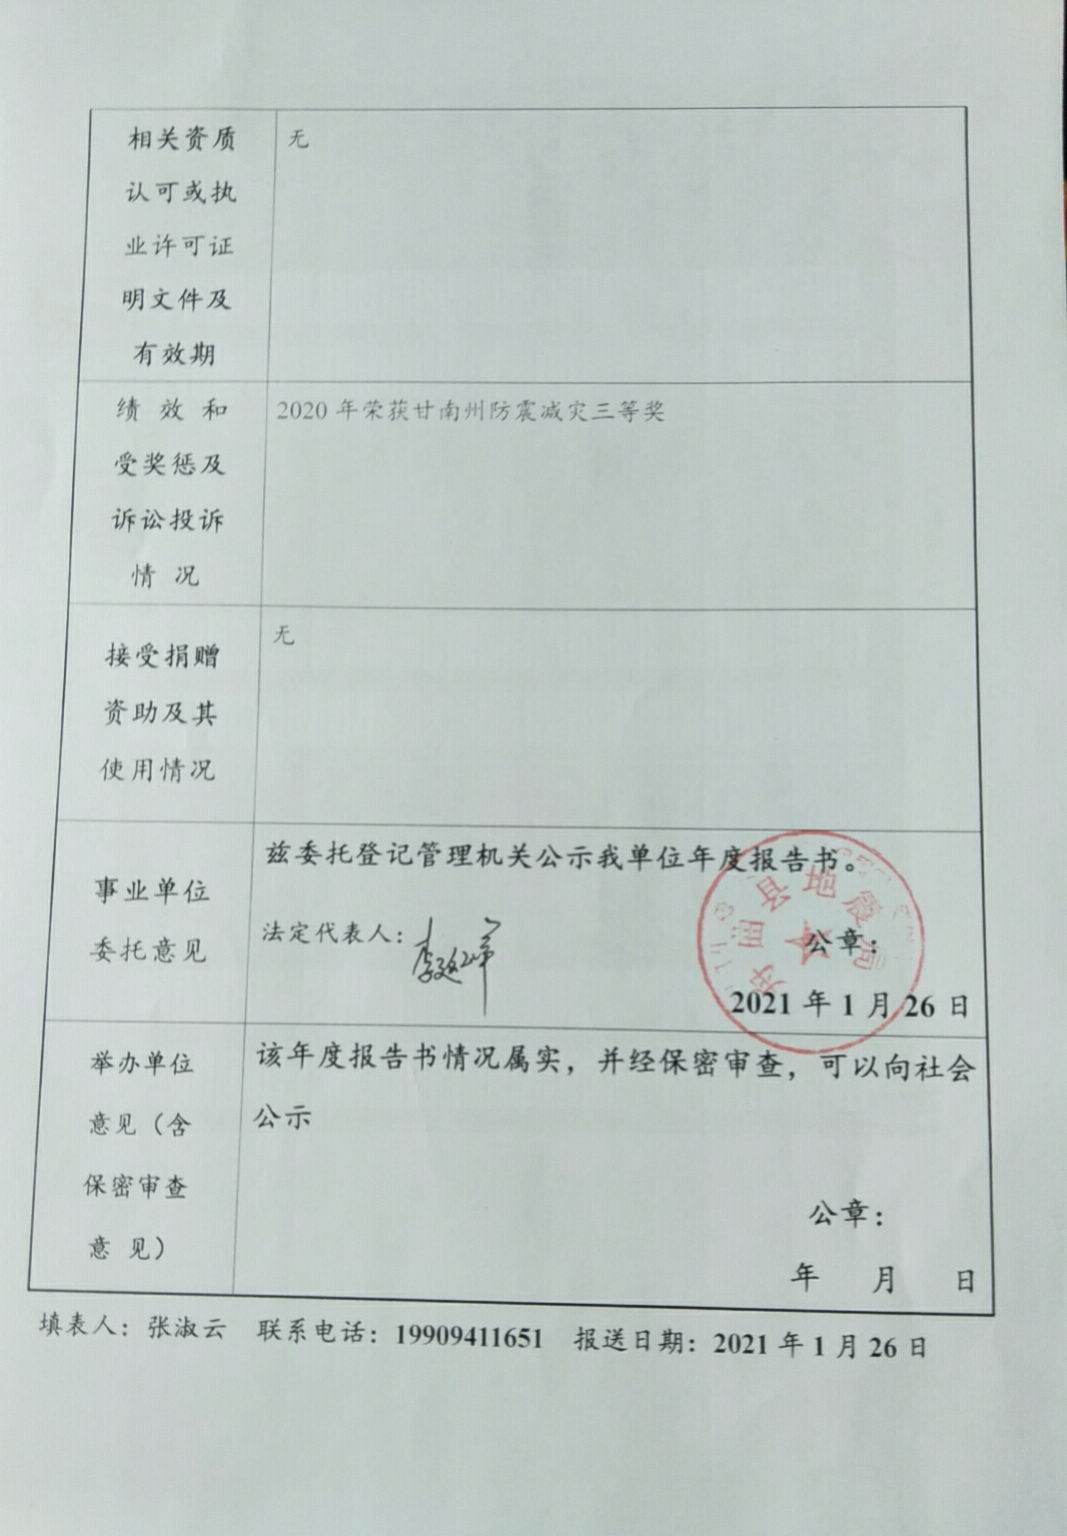 相关资质
认可或执
业许可证
明文件及
有效期
无
绩 效 和
受奖惩及
诉讼投诉
情 况
2020 年荣获甘南州防震减灾三等奖
接受捐赠
资助及其
使用情况
无
事业单位
委托意见
兹委托登记管理机关公示我单位年度报告书。
法定代表人：
公章：
2021 年 1 月 26 日
曲县地震局
举办单位
意见（含
保密审查
意 见）
该年度报告书情况属实，并经保密审查，可以向社会
公示
公章：
年 月 日
填表人：张淑云 联系电话：19909411651 报送日期：2021 年 1 月 26 日